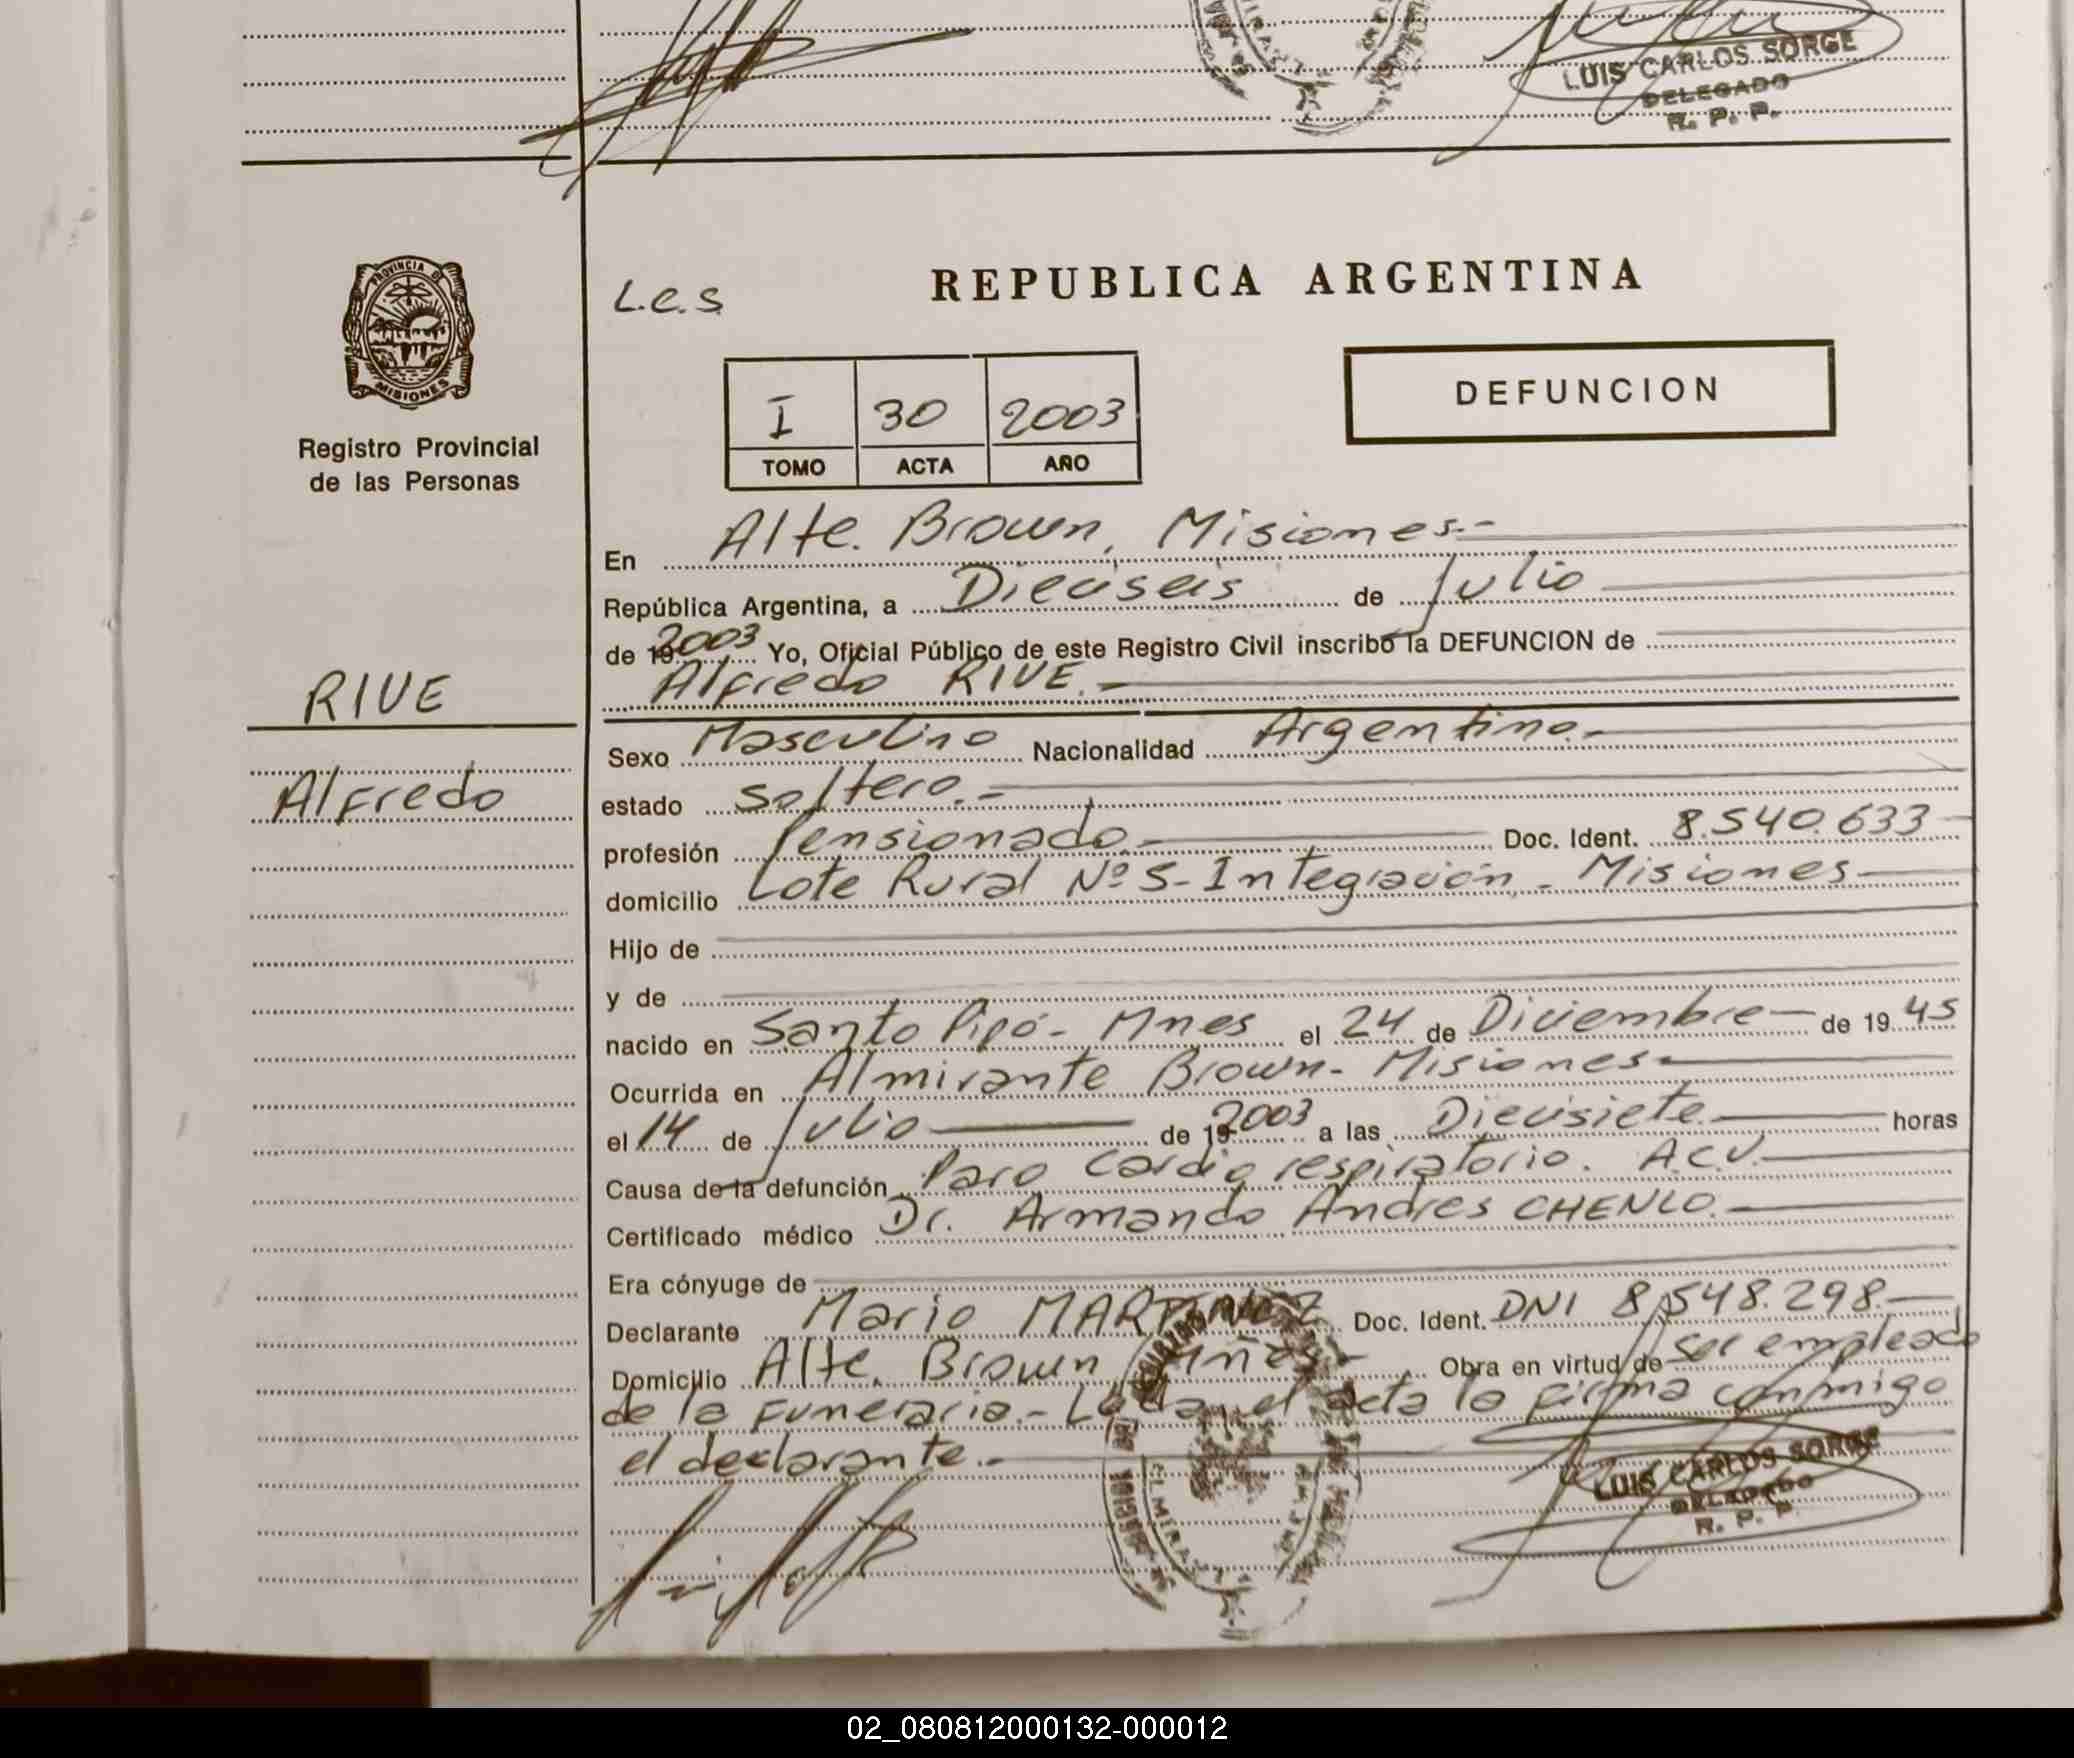 LUIS CARLOS SORGE
DELEGADO
R. P. P.
PROVINCIA DE
MISIONES
Registro Provincial
de las Personas
L.C.S.
REPUBLICA ARGENTINA
I 30 2003
TOMO ACTA AÑO
DEFUNCION
En Alte. Brown, Misiones.-
República Argentina, a Dieciseis de Julio
de 19 2003 Yo, Oficial Público de este Registro Civil inscribo la DEFUNCION de
Alfredo RIVE.-
RIVE
Alfredo
Sexo Masculino Nacionalidad Argentina.-
estado soltero.-
profesión Pensionado.- Doc. Ident. 8.540.633
domicilio Lote Rural Nº 5- Integración - Misiones
Hijo de
y de
nacido en Santo Pipó- Mnes el 24 de Diciembre de 19 45
Ocurrida en Almirante Brown- Misiones
el 14 de Julio de 19 2003 a las Diecisiete horas
Causa de la defunción Paro Cardio respiratorio. A.C.V.
Certificado médico Dr. Armando Andres CHENLO.
Era cónyuge de
Declarante Mario MARTINEZ Doc. Ident. DNI 8.548.298.-
Domicilio Alte. Brown Obra en virtud de ser empleado
de la Funeraria.- Leida el acta la firma conmigo
el declarante.-
LUIS CARLOS SORGE
DELEGADO
R. P. P.
02_080812000132-000012